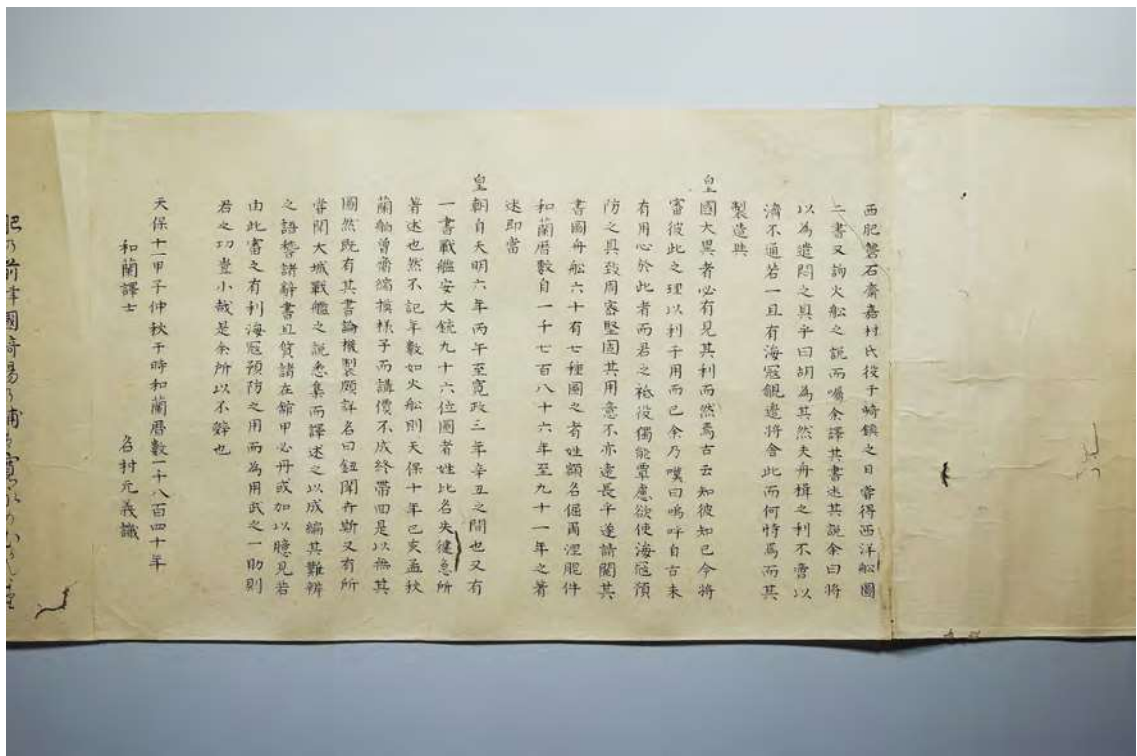 西肥磐石齋嘉村氏役于崎鎮之日嘗得西洋舩圖
二書又詢火舩之說而囑余譯其書述其說余曰將
以為遣悶之具乎曰胡為其然夫舟楫之利不啻以
濟不通若一旦有海寇覬邊將會此而何恃焉而其
製造與
皇國大異者必有見其利而然焉古云知彼知己今將
審彼此之理以利于用而已余乃嘆曰嗚呼自古未
有用心於此者而君之祗役獨能覃慮欲使海寇預
防之具致周審堅固其用意不亦遠長乎遂請閱其
書圖舟舩六十有七種圖之者姓額名倔爾涅肥件
和蘭曆數自一千七百八十六年至九十一年之著
述即當
皇朝自天明六年丙午至寬政三年辛丑之間也又有
一書戰艦安大銃九十六位圖者姓比名失健急所
著述也然不記年數如火舩則天保十年已亥孟秋
蘭舶曾齎縮模樣子而講價不成終帶回是以無其
圖然既有其書論機製頗詳名曰鈕聞卉斯又有所
嘗聞大城戰艦之說悉集而譯述之以成編其難辨
之語稽諸辭書且質諸在館甲必丹或加以臆見若
由此審之有利海寇預防之用而為用武之一助則
君之功豈小哉是余所以不辭也
天保十一甲子仲秋于時和蘭曆數一千八百四十年
和蘭譯士 名村元義識